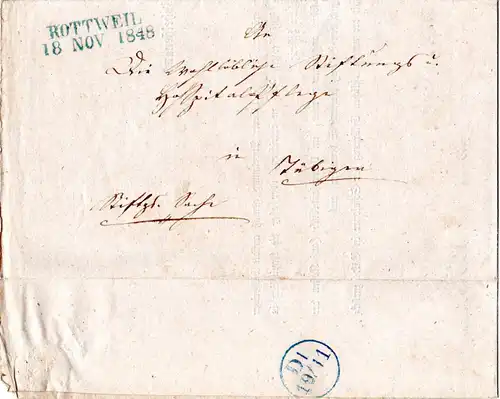 ROTTWEIL
18 NOV 1848
An
Die Wohllöbliche Stiftungs u.
Hospitalpflege
in
Tübigen
Stiftgs. Sache
DI
19/11